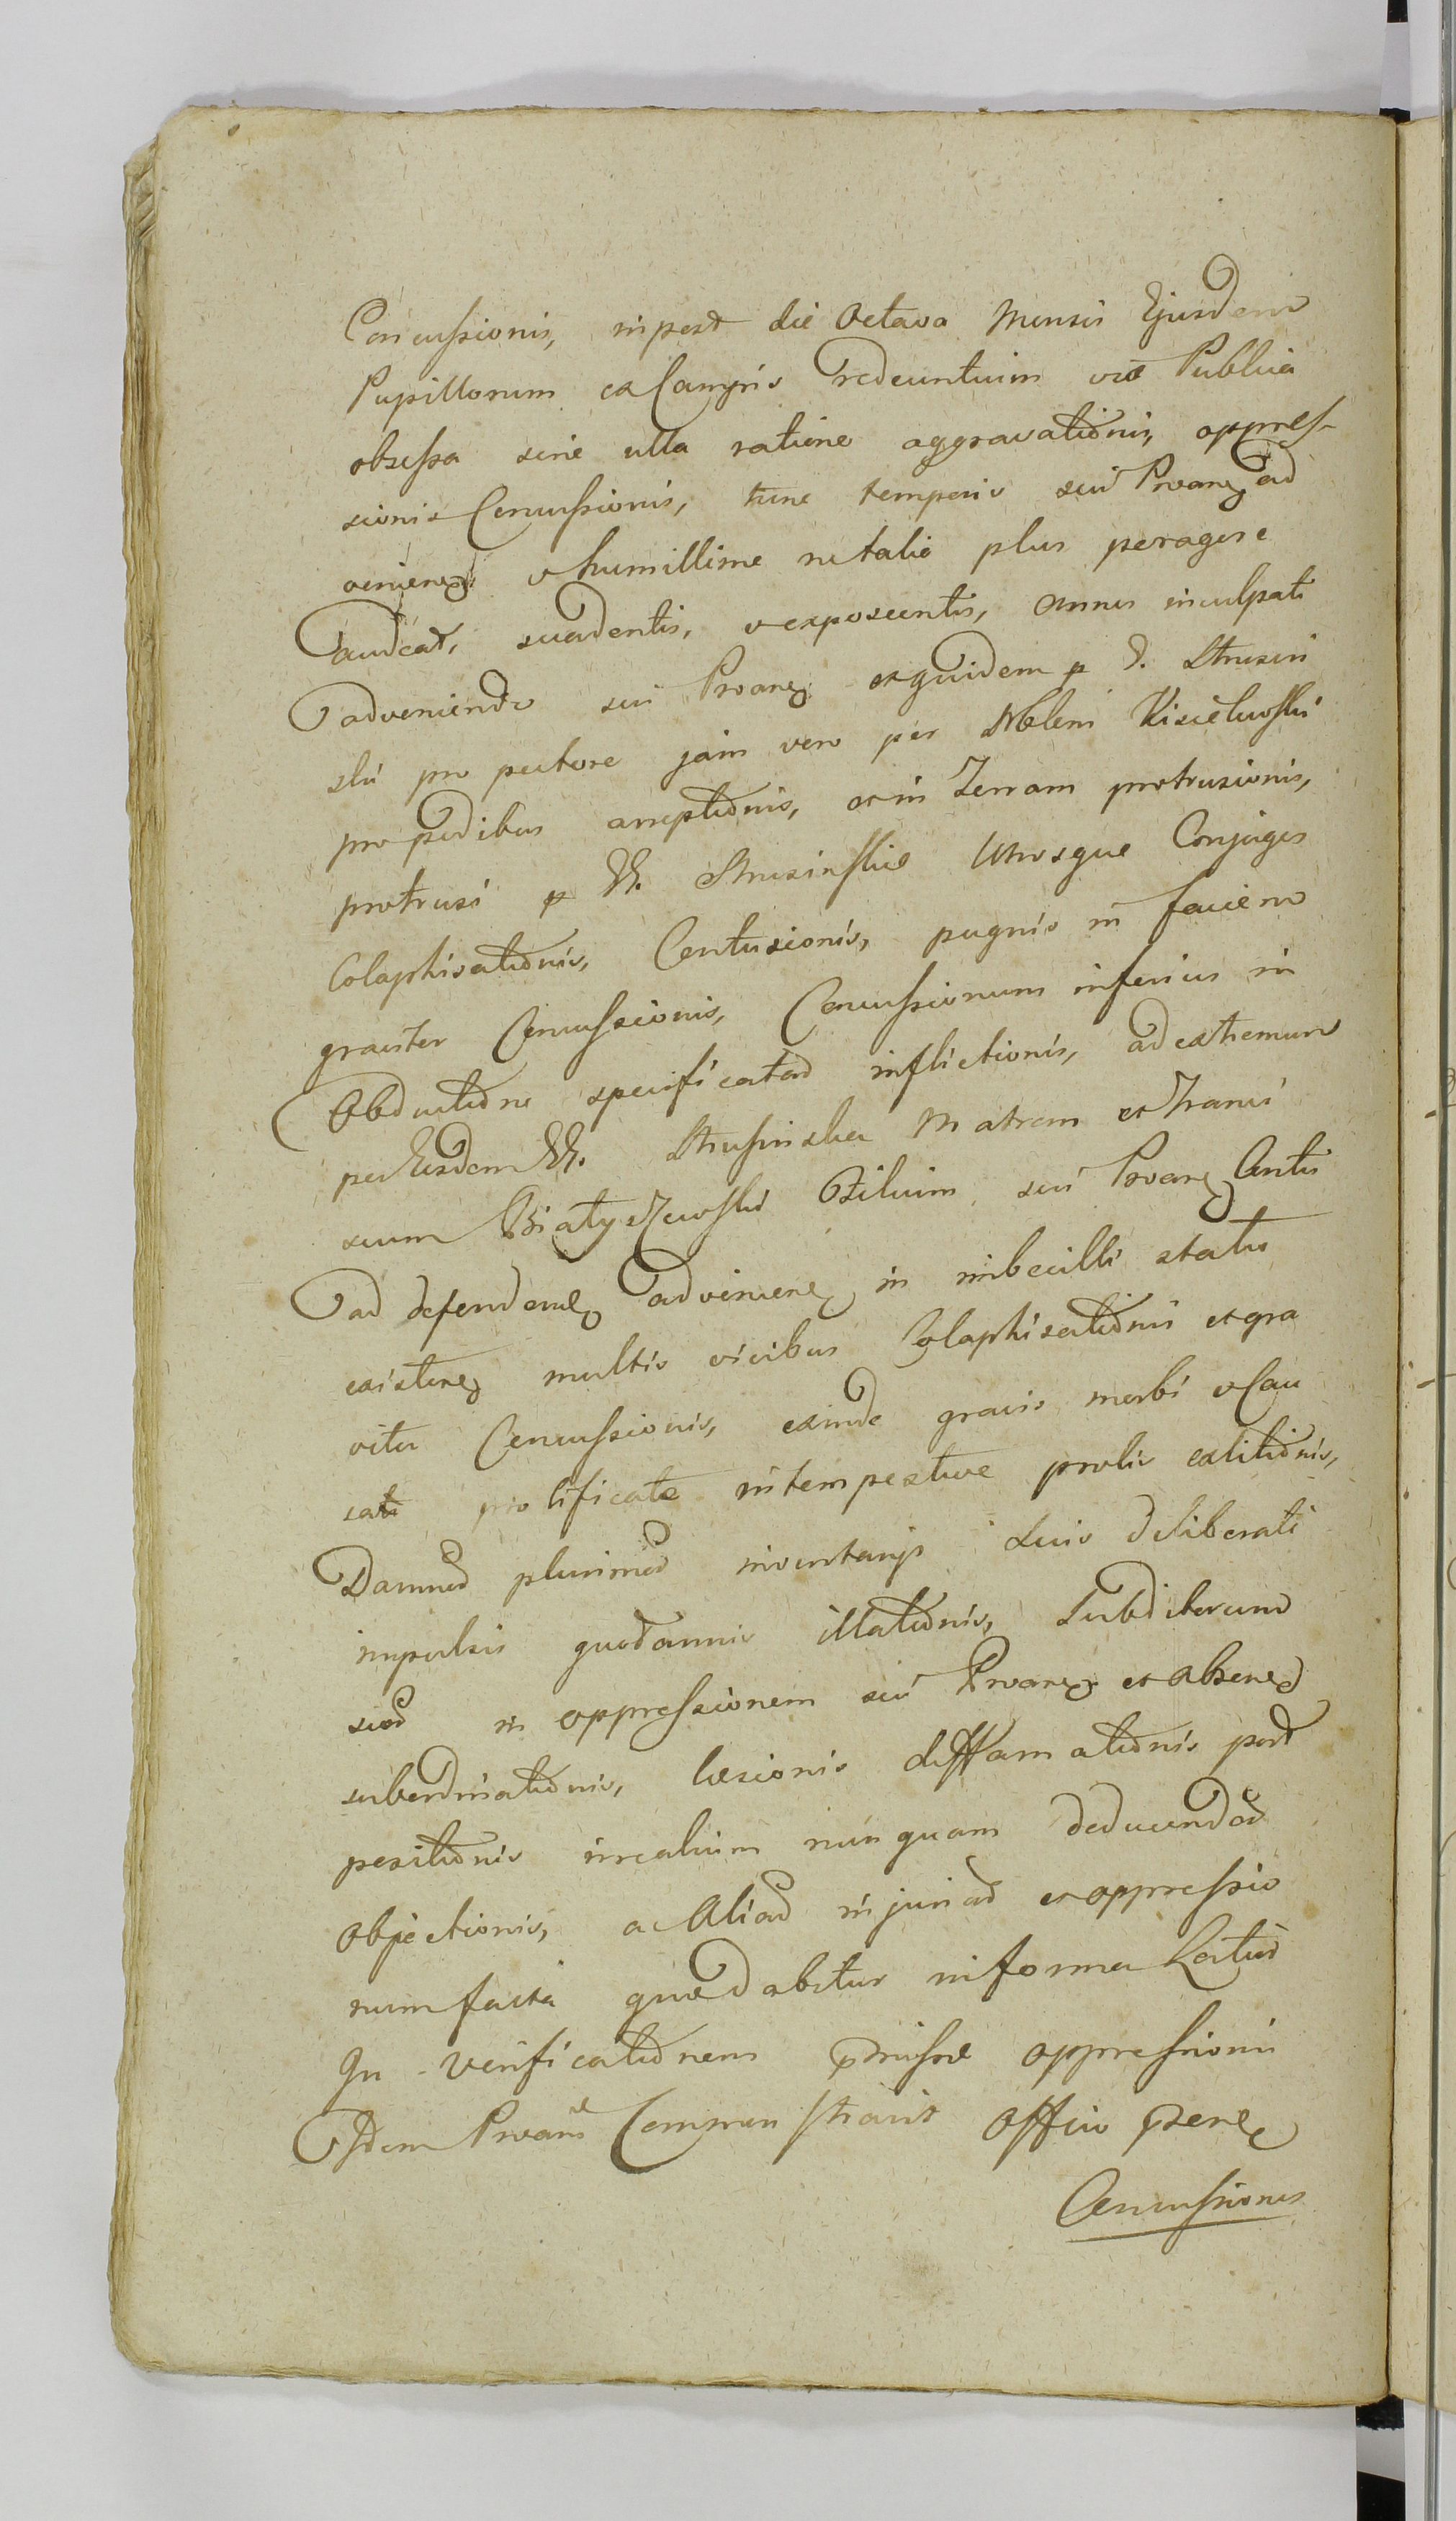 Concussionis, inpost die Octava Mensis Ejusdem
Pupillorum ex Campis redeuntium via Publica
obsessa sine ulla ratione aggravationis, oppres-
sionis Concussionis, tunc temporis sui Proane ad
veniene humillime ne talia plus peragere
audeat, suadentis, exposcentis, omnis inculpati
adveniendo sui Proane et quidem p D. Strusin
ski pro pectore jam vero per Noblem Kisielewski
pro pedibus arreptionis, et in Terram protrusionis,
protrusi p DD. Strusinskie Utrosque Conjuges
Colaphisationis, Contusionis, pugnis in faciem
graviter Concussionis, Concussionum inferius in
Obductione specificatad inflictionis, ad extremum
per Eosdem DD. Strusinskie Matrem et Franci
scum Białyszewski Filium sui Proane Antis
ad defendend adveniene in imbecilli statu
existene multis vicibus Colaphisationis et gra
viter Concussionis, exinde gravis morbi
sati prolificate intempestive prolis exlitionis,
Damnod plurimod inventarijs suis deliberati
impulsis quodannis illationis, Subditorum
suod in oppressionem sui Proane et absened
subordinationis, læsionis diffamationis post
positionis irrealium nunquam deducendod
objectionis, ac Aliad injuriad et oppressio
num facta quæ dabitur in forma Latius
In verificationem præmissæ oppressionis
Idem Proans Commonstravit Officio præne
Concussiones